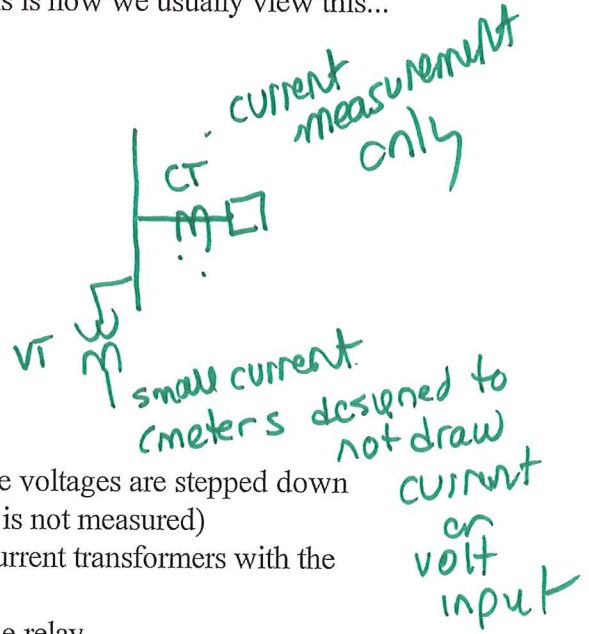 s is how we usually view this...
current
measurement
only
CT
VT
small current
(meters designed to
not draw
current
on
volt
input
e voltages are stepped down
is not measured)
urrent transformers with the
e relay